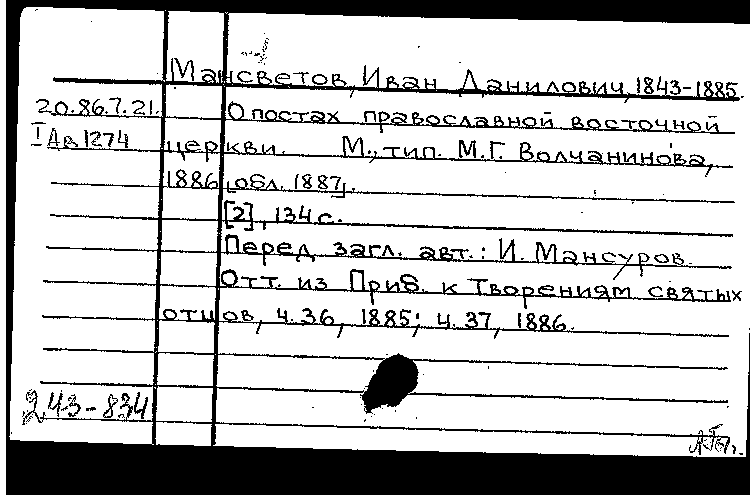 Мансветов, Иван Данилович, 1843-1885.
20.86.7.21. О постах православной восточной
I Ав 1274 церкви. М., тип. М.Г. Волчанинова,
1886 [обл. 1887].
[2], 134 с.
Перед загл. авт.: И. Мансуров.
Отт. из Приб. к Творениям святых
отцов, ч. 36, 1885; ч. 37, 1886.
243-834